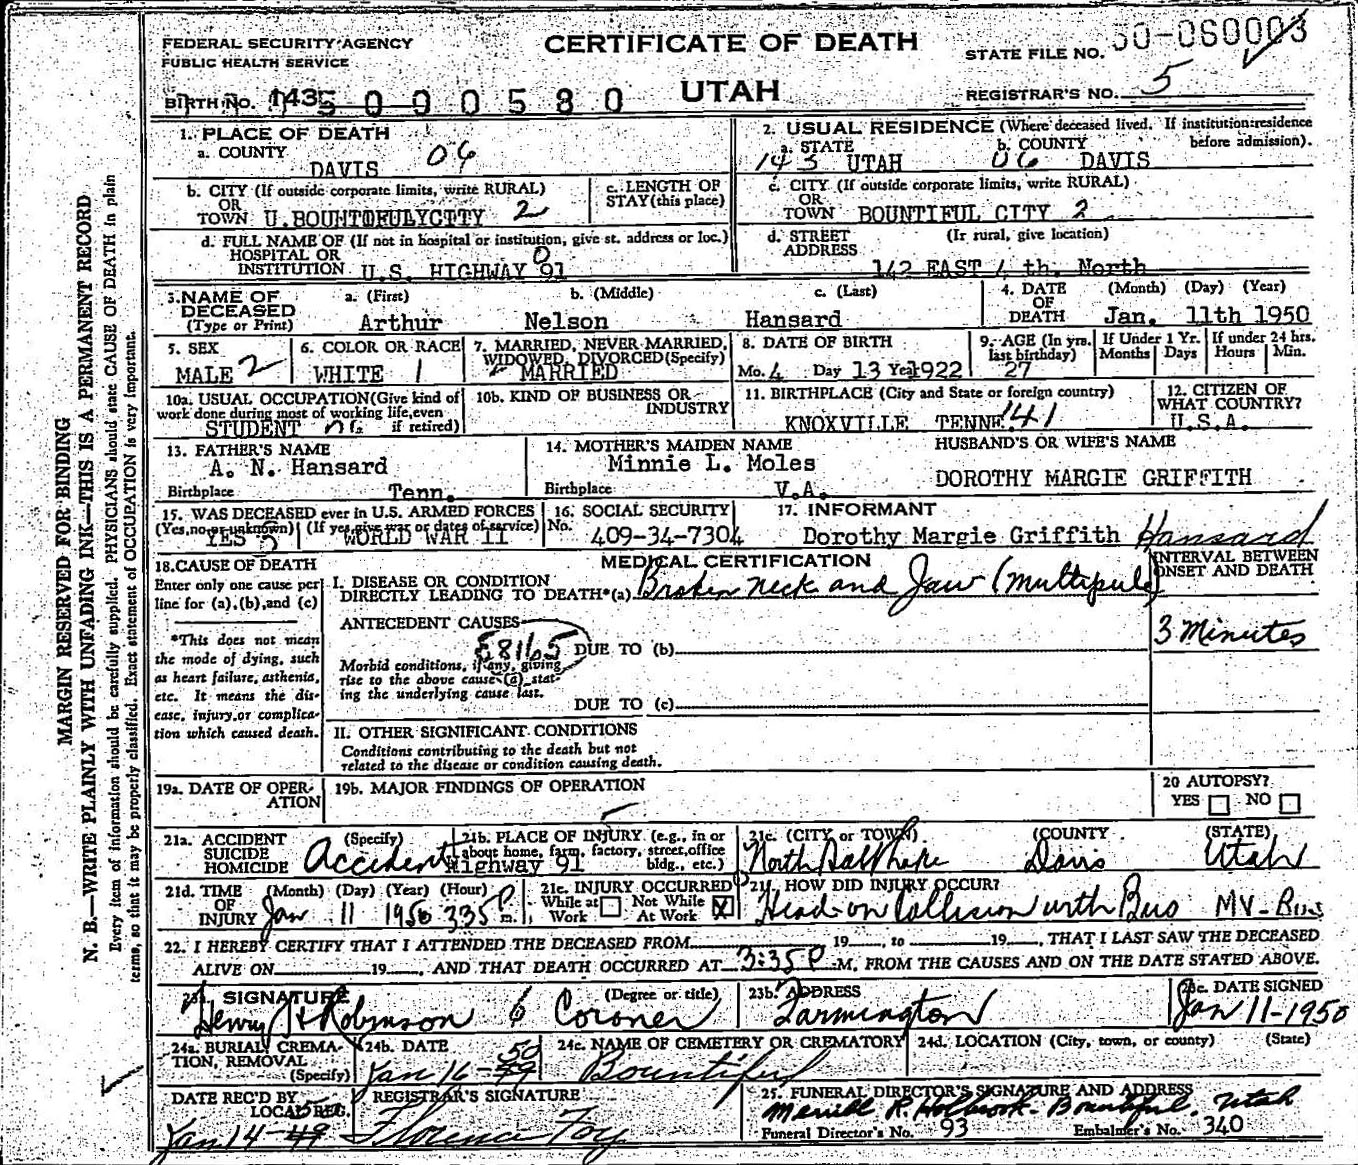 FEDERAL SECURITY AGENCY
PUBLIC HEALTH SERVICE
CERTIFICATE OF DEATH
UTAH
STATE FILE NO. 50-060003
REGISTRAR'S NO. 5
BIRTH NO. 1435 000580
1. PLACE OF DEATH
a. COUNTY
DAVIS 06
2. USUAL RESIDENCE (Where deceased lived. If institution: residence before admission).
a. STATE b. COUNTY
143 UTAH 06 DAVIS
b. CITY (If outside corporate limits, write RURAL)
OR
TOWN U.BOUNTIFULYCITY 2
c. LENGTH OF
STAY (this place)
c. CITY (If outside corporate limits, write RURAL)
OR
TOWN BOUNTIFUL CITY 2
d. FULL NAME OF (If not in hospital or institution, give st. address or loc.)
HOSPITAL OR
INSTITUTION U.S. HIGHWAY 91 0
d. STREET (If rural, give location)
ADDRESS
142 EAST 4 th. North
3. NAME OF DECEASED
(Type or Print)
a. (First) b. (Middle) c. (Last)
Arthur Nelson Hansard
4. DATE OF DEATH (Month) (Day) (Year)
Jan. 11th 1950
5. SEX
MALE 2
6. COLOR OR RACE
WHITE 1
7. MARRIED, NEVER MARRIED,
WIDOWED, DIVORCED (Specify)
MARRIED
8. DATE OF BIRTH
Mo. 4 Day 13 Year 1922
9. AGE (In yrs. last birthday)
27
If Under 1 Yr. Months Days
If under 24 hrs. Hours Min.
10a. USUAL OCCUPATION (Give kind of
work done during most of working life, even
if retired)
STUDENT
10b. KIND OF BUSINESS OR
INDUSTRY
11. BIRTHPLACE (City and State or foreign country)
KNOXVILLE TENNE 141
12. CITIZEN OF
WHAT COUNTRY?
U.S.A.
13. FATHER'S NAME
A. N. Hansard
Birthplace Tenn.
14. MOTHER'S MAIDEN NAME
Minnie L. Moles
Birthplace V.A.
HUSBAND'S OR WIFE'S NAME
DOROTHY MARGIE GRIFFITH
15. WAS DECEASED ever in U.S. ARMED FORCES
(Yes, no or unknown) (If yes, give war or dates of service)
YES 5 WORLD WAR II
16. SOCIAL SECURITY
No. 409-34-7304
17. INFORMANT
Dorothy Margie Griffith Hansard
18. CAUSE OF DEATH
Enter only one cause per
line for (a), (b), and (c)
*This does not mean
the mode of dying, such
as heart failure, asthenia,
etc. It means the dis-
ease, injury, or complica-
tion which caused death.
MEDICAL CERTIFICATION
I. DISEASE OR CONDITION
DIRECTLY LEADING TO DEATH*(a) Broken neck and Jaw (multipule)
INTERVAL BETWEEN
ONSET AND DEATH
3 Minutes
ANTECEDENT CAUSES
E8165
DUE TO (b)
Morbid conditions, if any, giving
rise to the above cause (a) stat-
ing the underlying cause last.
DUE TO (c)
II. OTHER SIGNIFICANT CONDITIONS
Conditions contributing to the death but not
related to the disease or condition causing death.
19a. DATE OF OPER-
ATION
19b. MAJOR FINDINGS OF OPERATION
20 AUTOPSY?
YES NO
21a. ACCIDENT (Specify)
SUICIDE
HOMICIDE Accident
21b. PLACE OF INJURY (e.g., in or
about home, farm, factory, street, office
bldg., etc.)
Highway 91
21c. (CITY or TOWN) (COUNTY) (STATE)
North Salt Lake Davis Utah
21d. TIME (Month) (Day) (Year) (Hour)
OF
INJURY Jan 11 1950 335 P m.
21e. INJURY OCCURRED
While at Work Not While At Work X
21f. HOW DID INJURY OCCUR?
Head-on Collision with Bus MV-Bus
22. I HEREBY CERTIFY THAT I ATTENDED THE DECEASED FROM 19 , to 19 , THAT I LAST SAW THE DECEASED
ALIVE ON 19 , AND THAT DEATH OCCURRED AT 3:35 P M, FROM THE CAUSES AND ON THE DATE STATED ABOVE.
23a. SIGNATURE (Degree or title)
Henry H Robinson 6 Coroner
23b. ADDRESS
Farmington
23c. DATE SIGNED
Jan 11-1950
24a. BURIAL, CREMA-
TION, REMOVAL
(Specify)
24b. DATE
Jan 16-49 50
24c. NAME OF CEMETERY OR CREMATORY
Bountiful
24d. LOCATION (City, town, or county) (State)
DATE REC'D BY
LOCAL REG.
Jan 14-49
REGISTRAR'S SIGNATURE
Florence Foy
25. FUNERAL DIRECTOR'S SIGNATURE AND ADDRESS
Merrill R. Holbrook - Bountiful, Utah
Funeral Director's No. 93 Embalmer's No. 340
MARGIN RESERVED FOR BINDING
N. B.—WRITE PLAINLY WITH UNFADING INK—THIS IS A PERMANENT RECORD
Every item of information should be carefully supplied. PHYSICIANS should state CAUSE OF DEATH in plain
terms, so that it may be properly classified. Exact statement of OCCUPATION is very important.